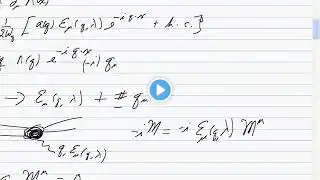 1/2ω_q [ a(q) ε_μ(q,λ) e^{-iq·x} + h.c. }
Λ(q) e^{-iq·x} (-i) q_μ
→ ε_μ(q,λ) + # q_μ
-iM = -i ε_μ(q,λ) M^μ
q, ε_μ(q,λ)
q_μ M^μ = 0